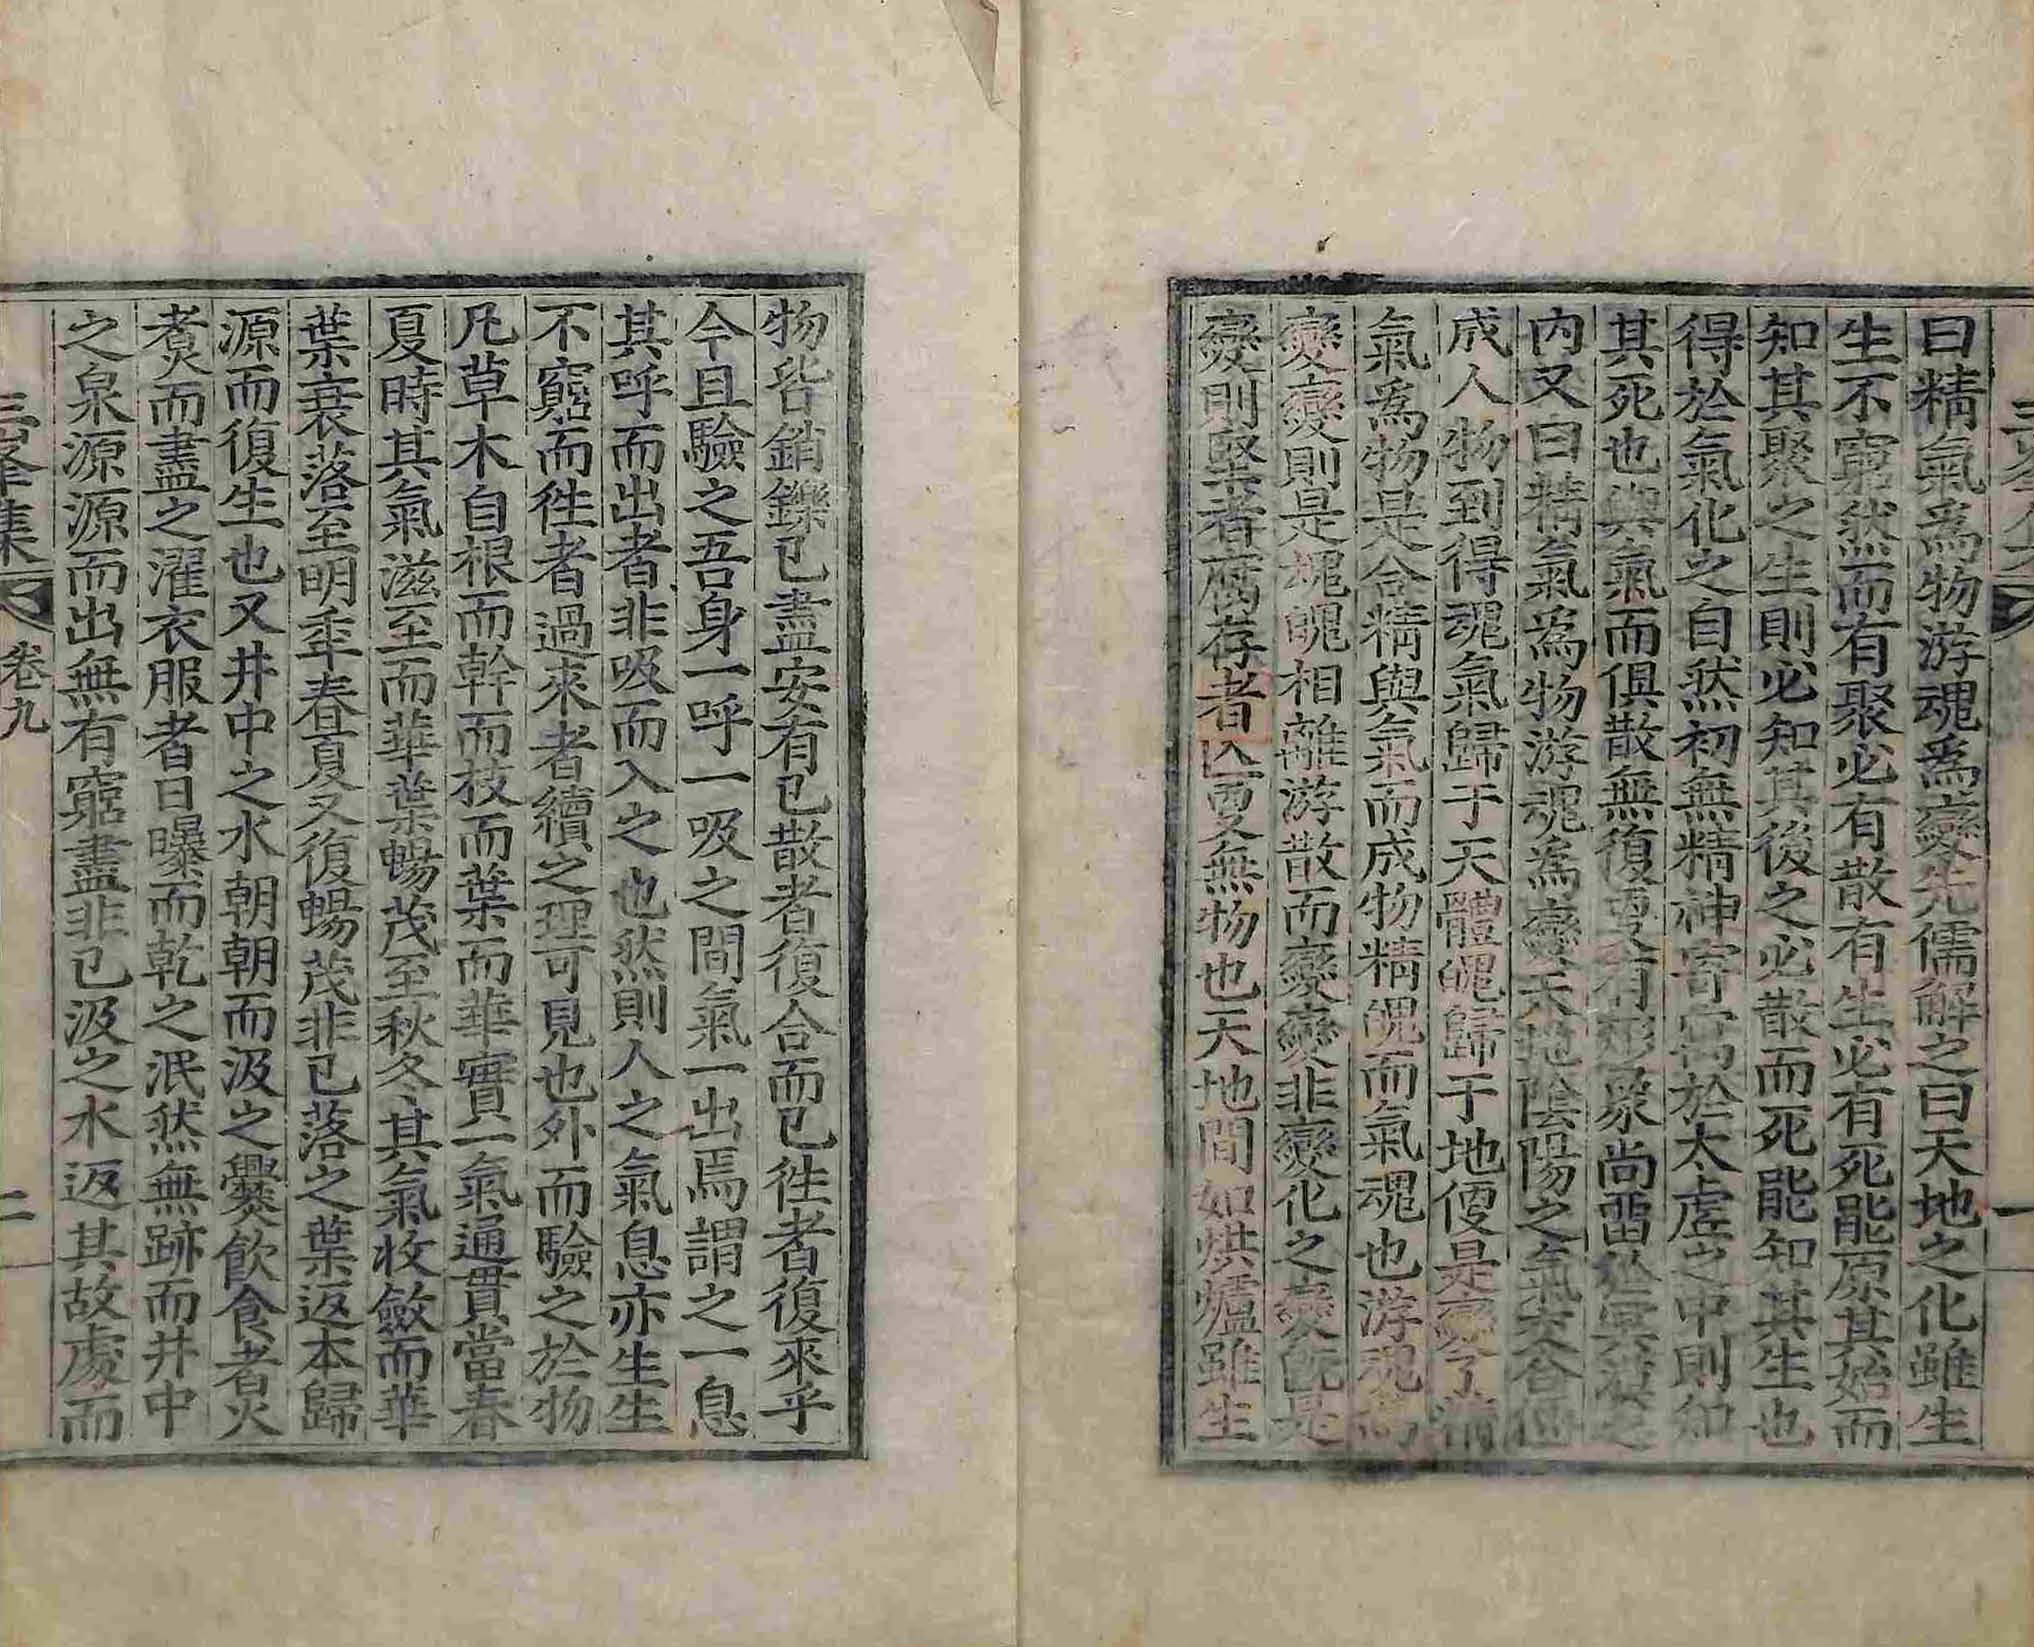 曰精氣爲物游魂爲變先儒解之曰天地之化雖生
生不窮然而有聚必有散有生必有死能原其始而
知其聚之生則必知其後之必散而死能知其生也
得於氣化之自然初無精神寄寓於太虛之中則知
其死也與氣而俱散無復更有形象尚留於冥漠之
內又曰精氣爲物游魂爲變天地陰陽之氣交合便
成人物到得魂氣歸于天體魄歸于地便是變了精
氣爲物是合精與氣而成物精魄而氣魂也游魂爲
變變則是魂魄相離游散而變變非變化之變旣是
變則堅者腐存者亡更無物也天地間如烘爐雖生
物皆銷鑠已盡安有已散者復合而已徃者復來乎
今且驗之吾身一呼一吸之間氣一出焉謂之一息
其呼而出者非吸而入之也然則人之氣息亦生生
不窮而徃者過來者續之理可見也外而驗之於物
凡草木自根而幹而枝而葉而華實一氣通貫當春
夏時其氣滋至而華葉暢茂至秋冬其氣收斂而華
葉衰落至明年春夏又復暢茂非已落之葉返本歸
源而復生也又井中之水朝朝而汲之爨飮食者火
煑而盡之濯衣服者日曝而乾之泯然無跡而井中
之泉源源而出無有窮盡非已汲之水返其故處而
三峯集 卷九 二